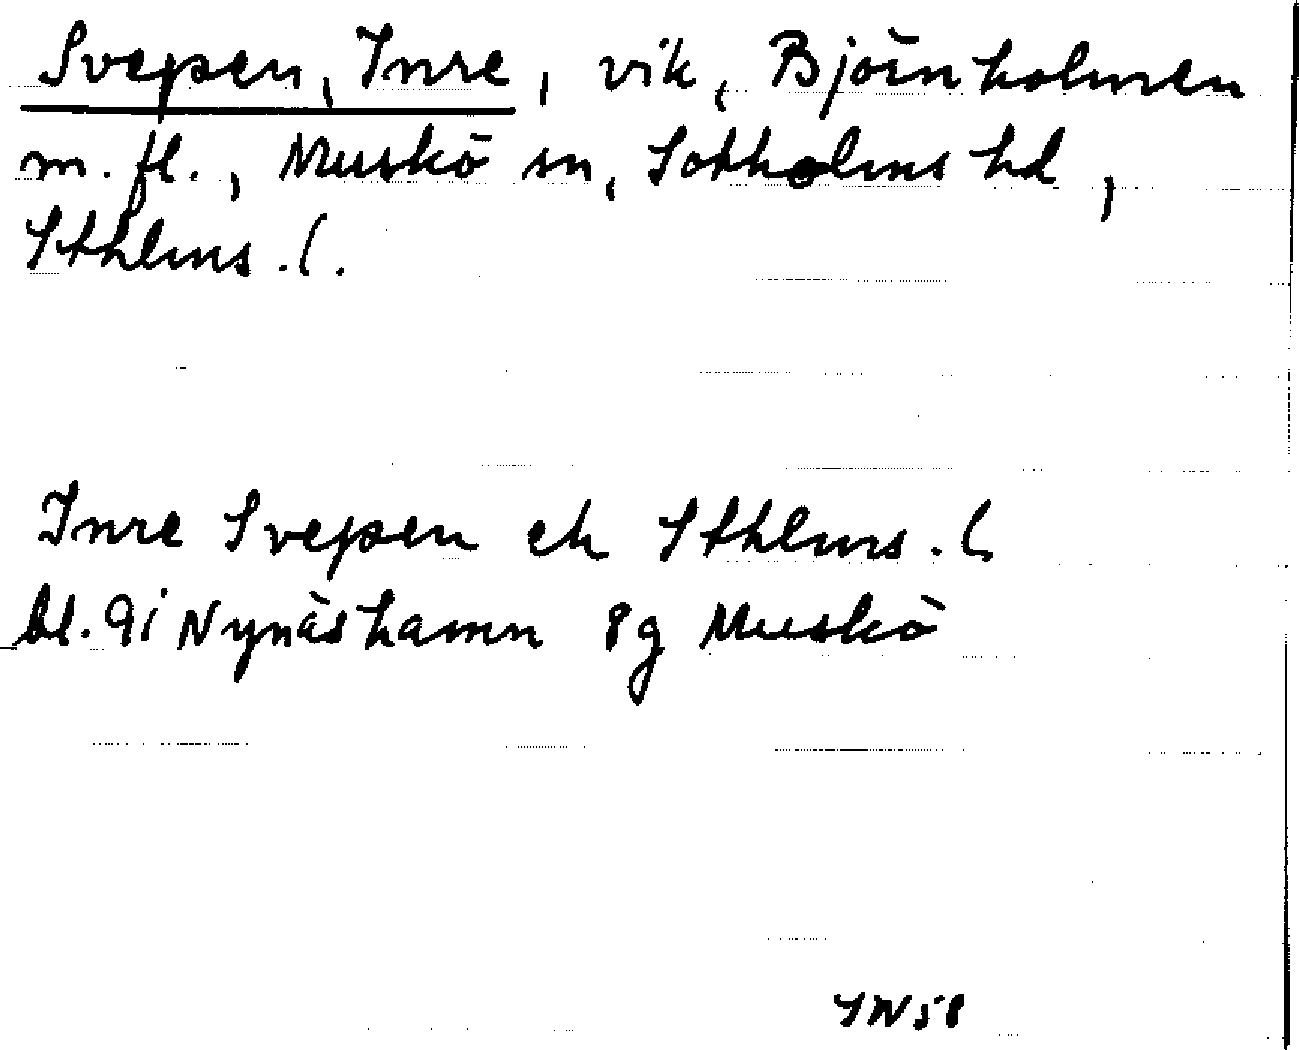 Svepen, Inre, vik, Björnholmen
m.fl., Muskö sn, Sotholms hd,
Sthlms.l.
Inre Svepen ek Sthlms.l.
bl. 9i Nynäshamn 8g Muskö
SW58